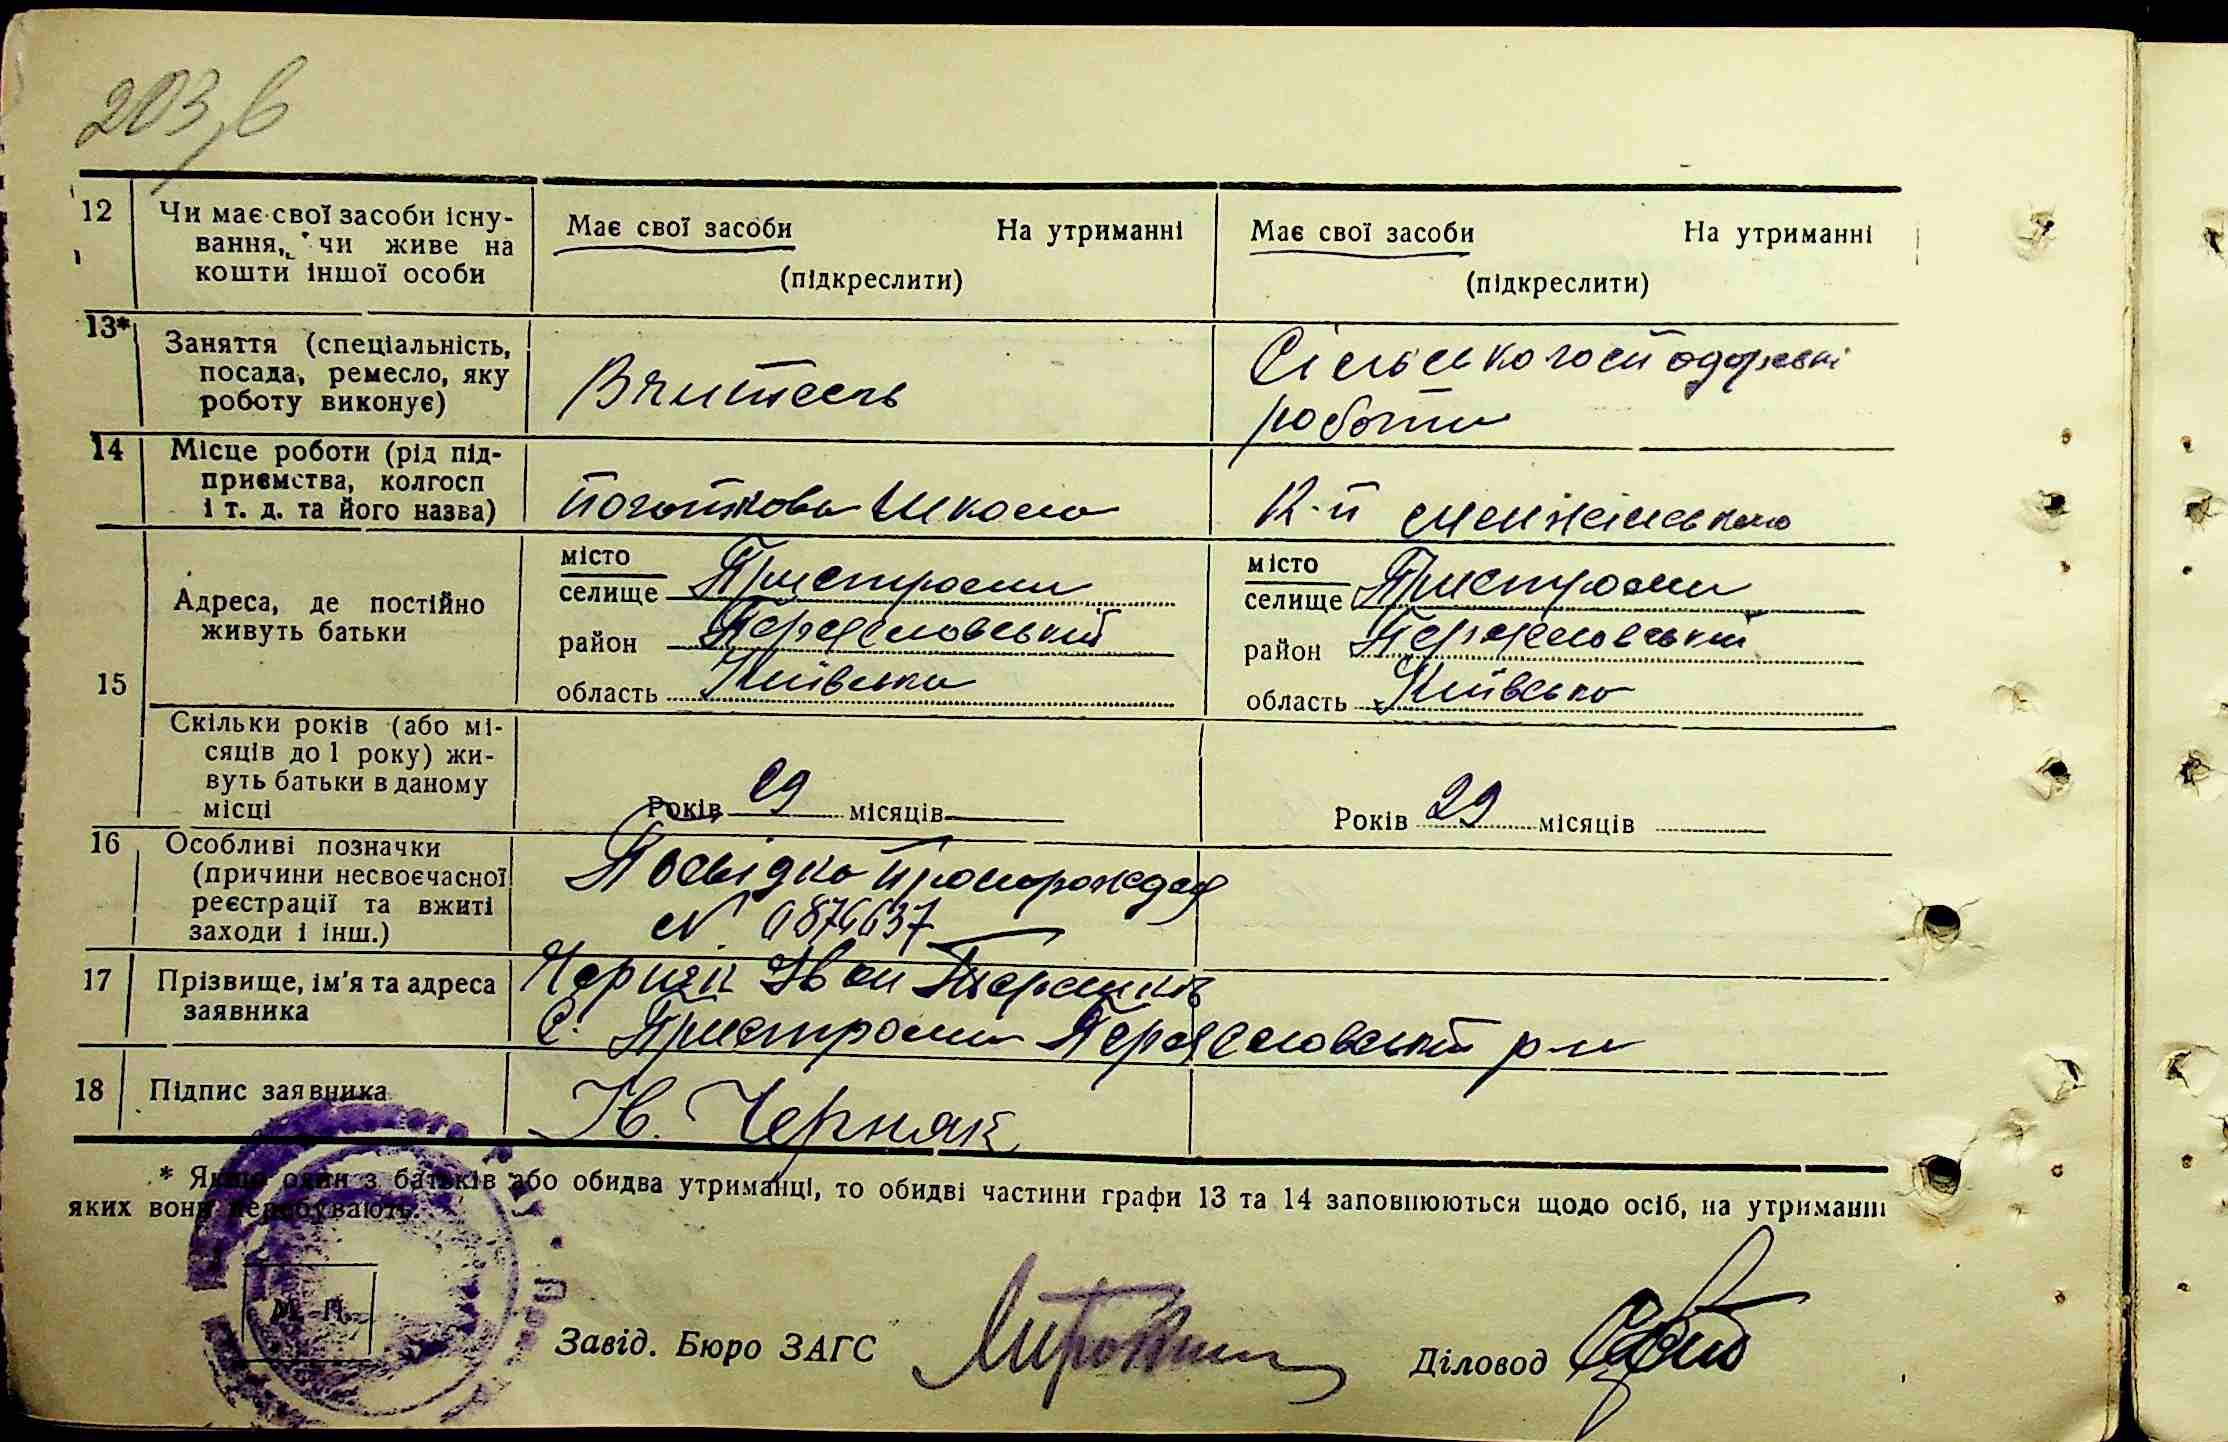 203,6
12 Чи має свої засоби існу-
вання, чи живе на
кошти іншої особи
Має свої засоби На утриманні
(підкреслити)
Має свої засоби На утриманні
(підкреслити)
13* Заняття (спеціальність,
посада, ремесло, яку
роботу виконує)
Вчитель
Сільськогосподарські
роботи
14 Місце роботи (рід під-
приємства, колгосп
і т. д. та його назва)
Початкова школа
К-п Менжінського
15
Адреса, де постійно
живуть батьки
місто
селище Пристроми
район Переяславський
область Київська
місто
селище Пристроми
район Переяславський
область Київська
Скільки років (або мі-
сяців до 1 року) жи-
вуть батьки в даному
місці
Років 29 місяців
Років 29 місяців
16 Особливі позначки
(причини несвоєчасної
реєстрації та вжиті
заходи і інш.)
Посвідка про
N 0876637
17 Прізвище, ім'я та адреса
заявника
Черняк Іван
С. Пристроми Переяславський р-н
18 Підпис заявника
Ів. Черняк
* Якщо один з батьків або обидва утриманці, то обидві частини графи 13 та 14 заповнюються щодо осіб, на утриманні
яких вони перебувають.
М. П.
Завід. Бюро ЗАГС
Діловод